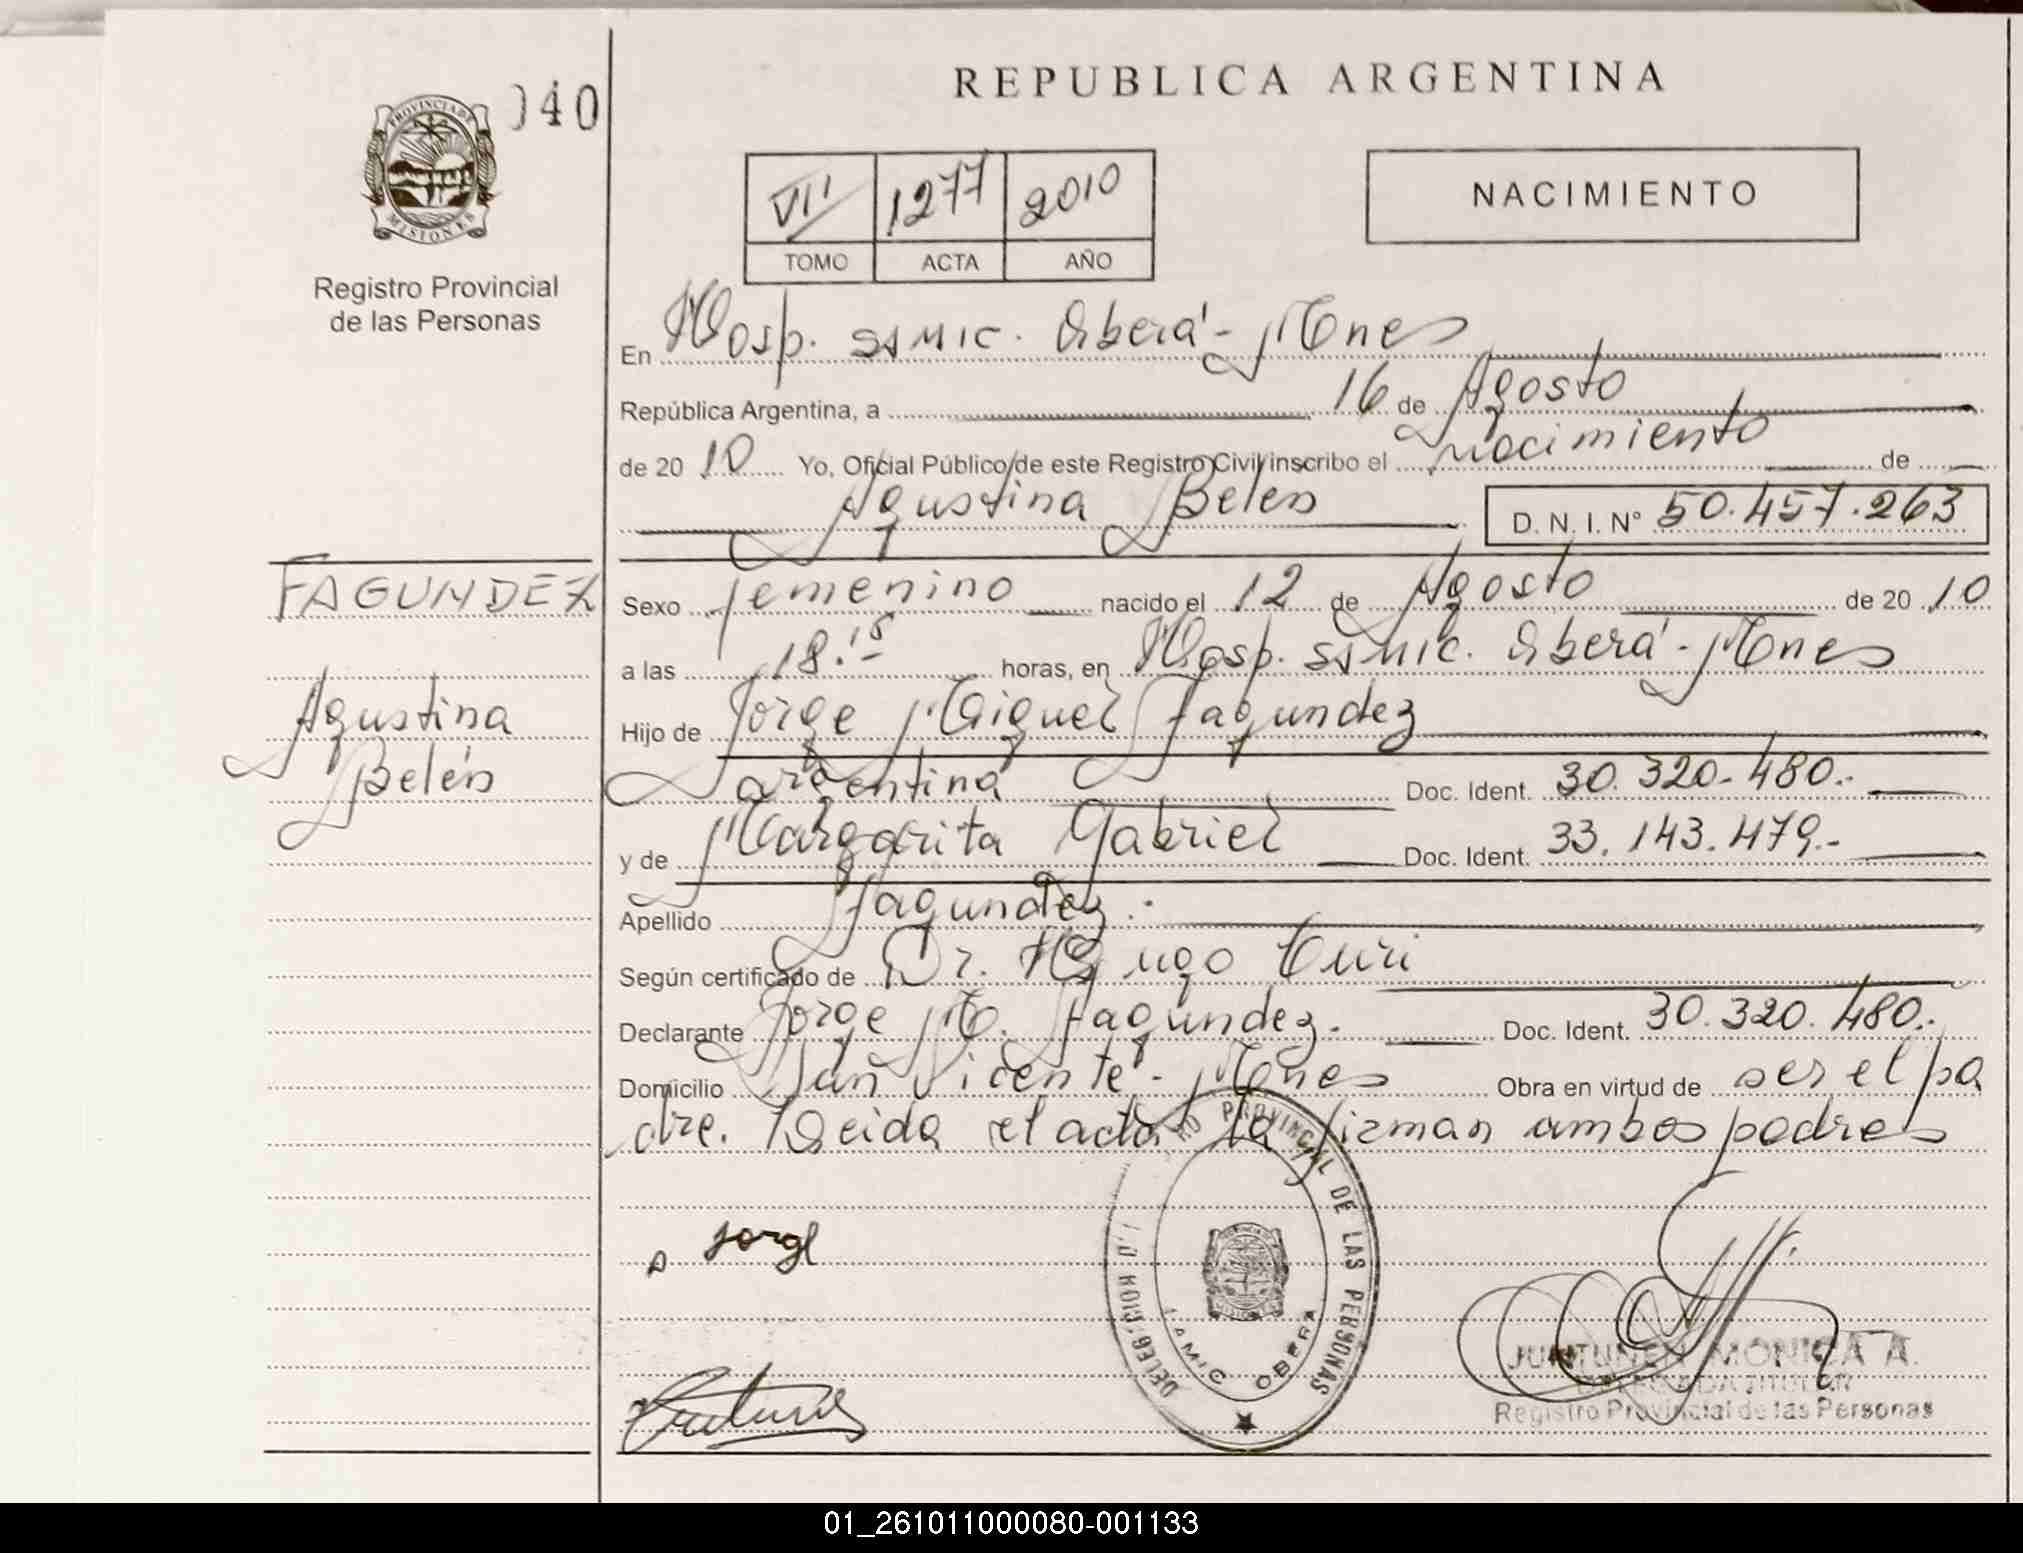 040
REPUBLICA ARGENTINA
PROVINCIA DE
MISIONES
Registro Provincial
de las Personas
VII 1277 2010
TOMO ACTA AÑO
NACIMIENTO
En Hosp. SAMIC. Oberá - Mnes
República Argentina, a 16 de Agosto
de 2010 Yo, Oficial Público de este Registro Civil inscribo el nacimiento de
Agustina Belén D. N. I. N° 50.457.263
FAGUNDEZ
Agustina
Belén
Sexo femenino nacido el 12 de Agosto de 2010
a las 18.15 horas, en Hosp. SAMIC. Oberá - Mnes
Hijo de Jorge Miguel Fagundez
argentina Doc. Ident. 30.320.480.-
y de Margarita Gabriel Doc. Ident. 33.143.479.-
Apellido Fagundez.-
Según certificado de Dr. Hugo
Declarante Jorge M. Fagundez. Doc. Ident. 30.320.480.-
Domicilio San Vicente - Mnes Obra en virtud de ser el pa
dre. Leida el acta la firman ambos padres
Jorge
PROVINCIAL DE LAS PERSONAS
SAMIC OBERA
JUNTUNEN MONICA A.
DELEGADA TITULAR
Registro Provincial de las Personas
01_261011000080-001133